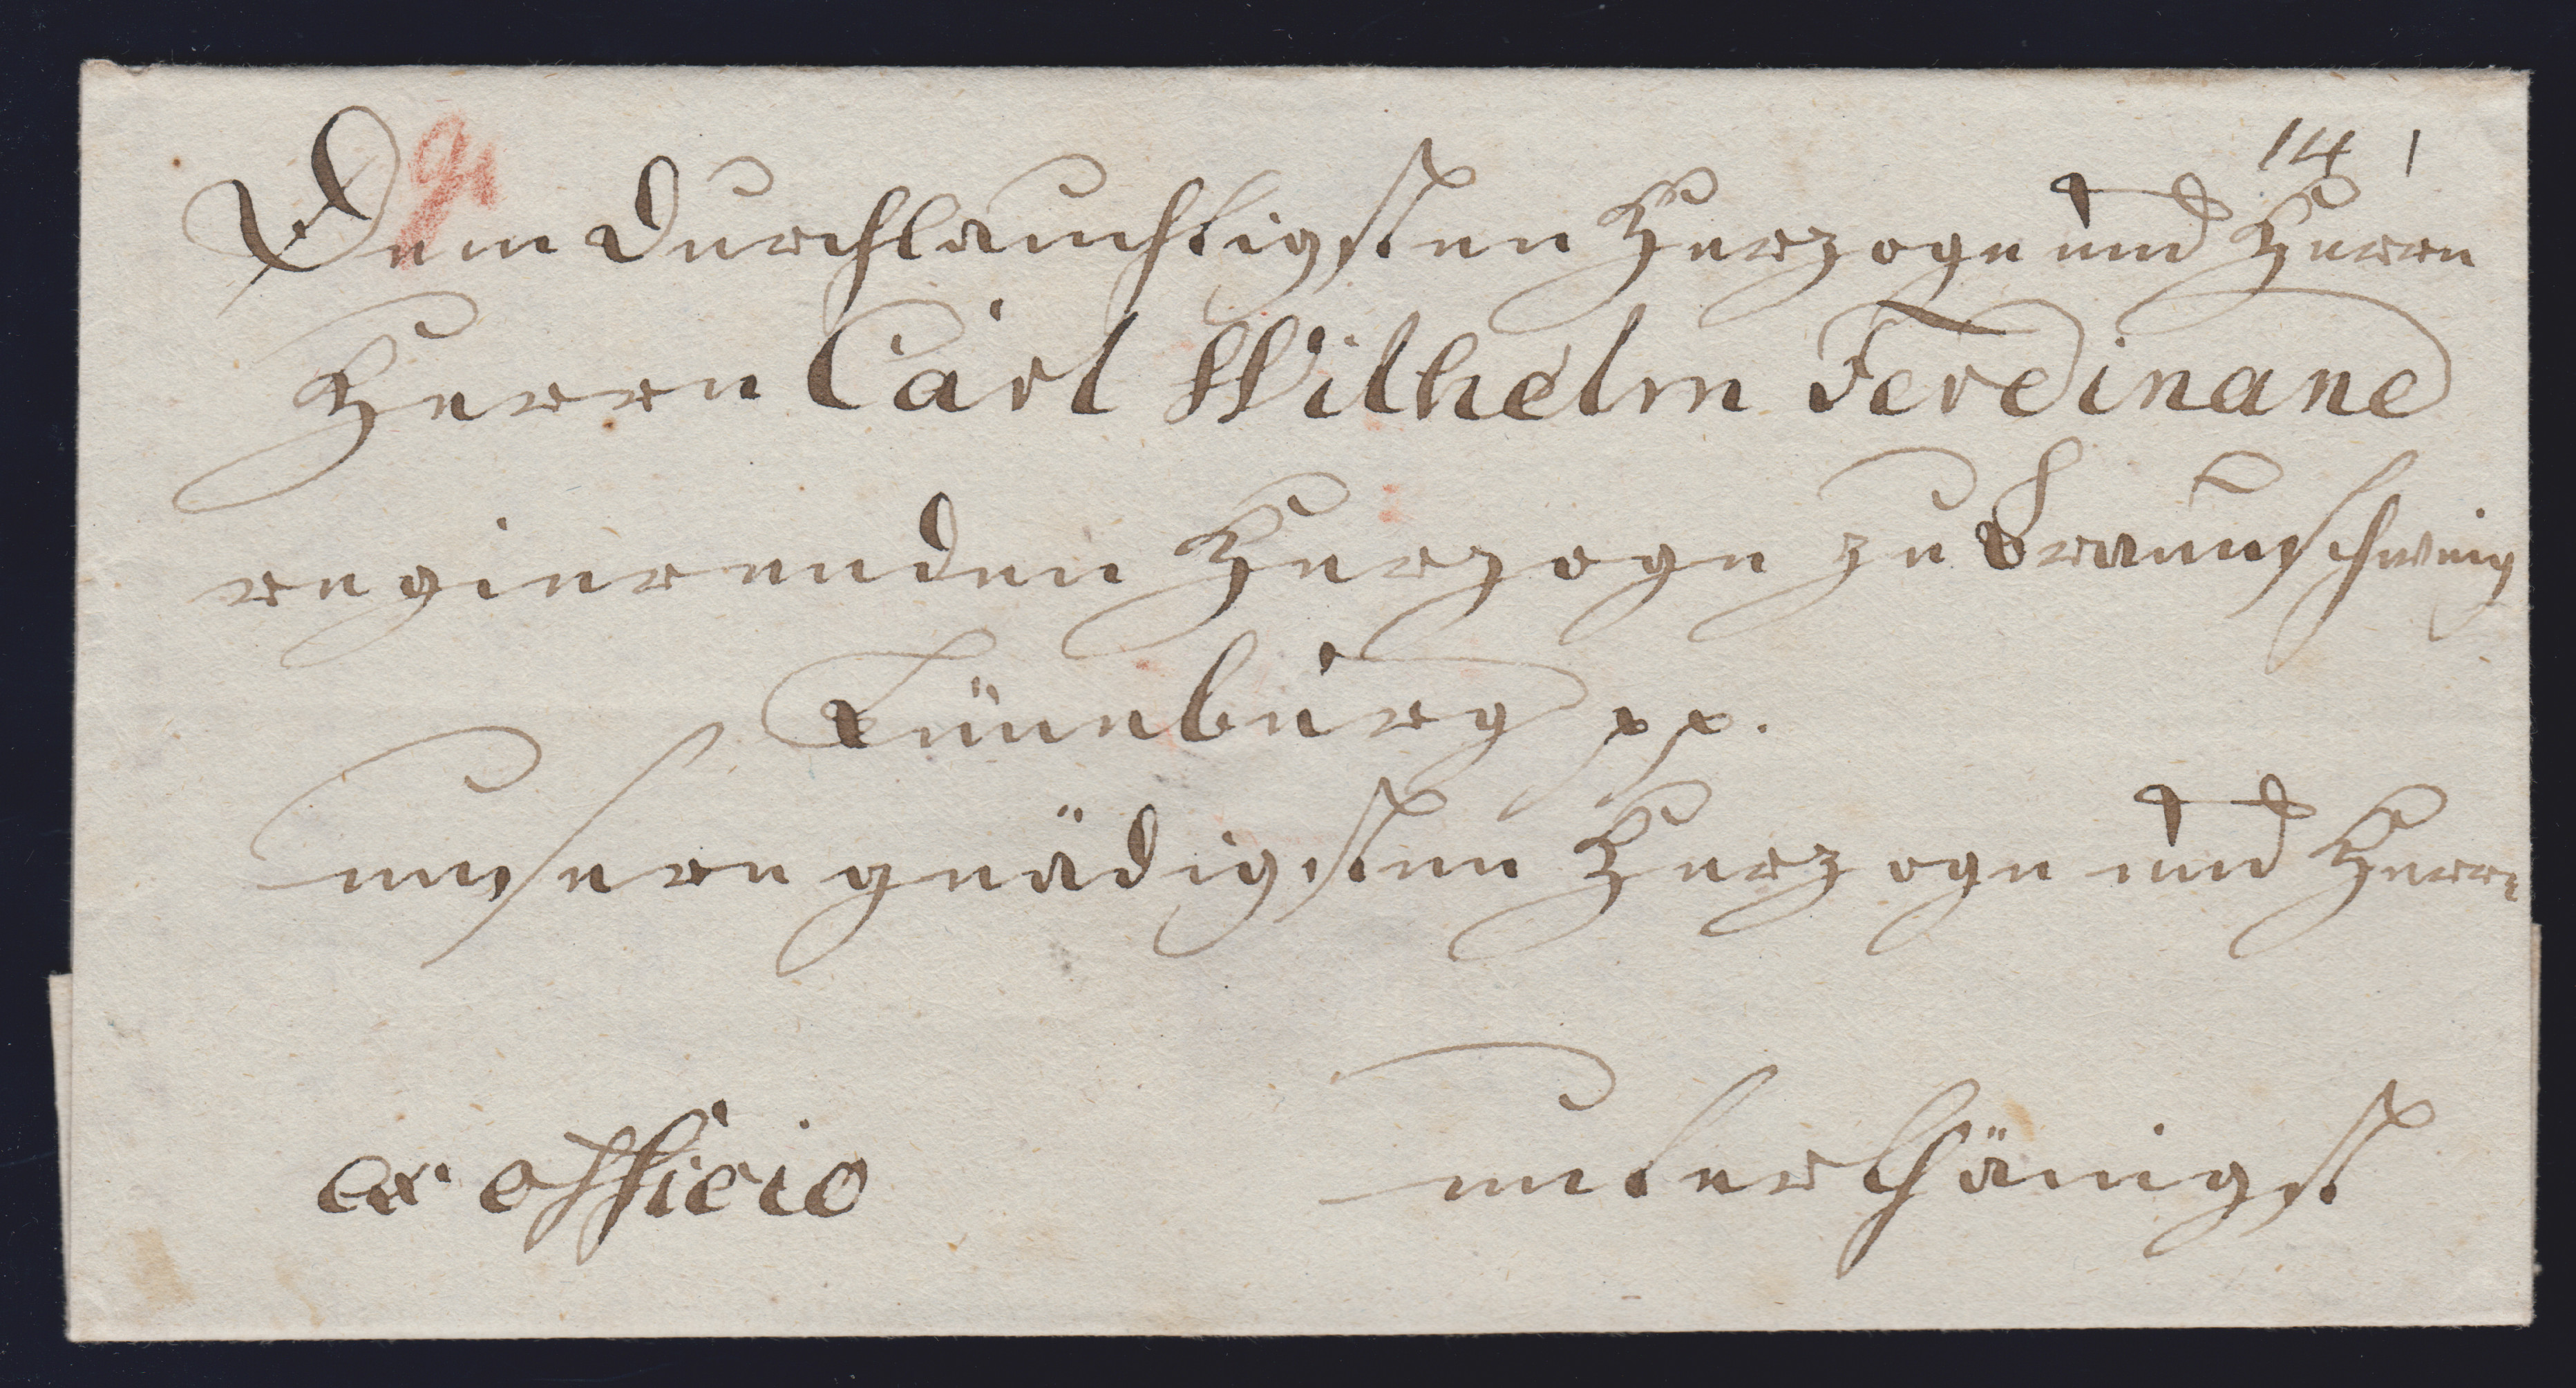 14 1
Dem Durchlauchtigsten Herzoge und Herrn
Herrn Carl Wilhelm Ferdinand
regierenden Herzoge zu Braunschweig
Lüneburg pp.
unsern gnädigsten Herzoge und Herrn
ex officio unterthänigst